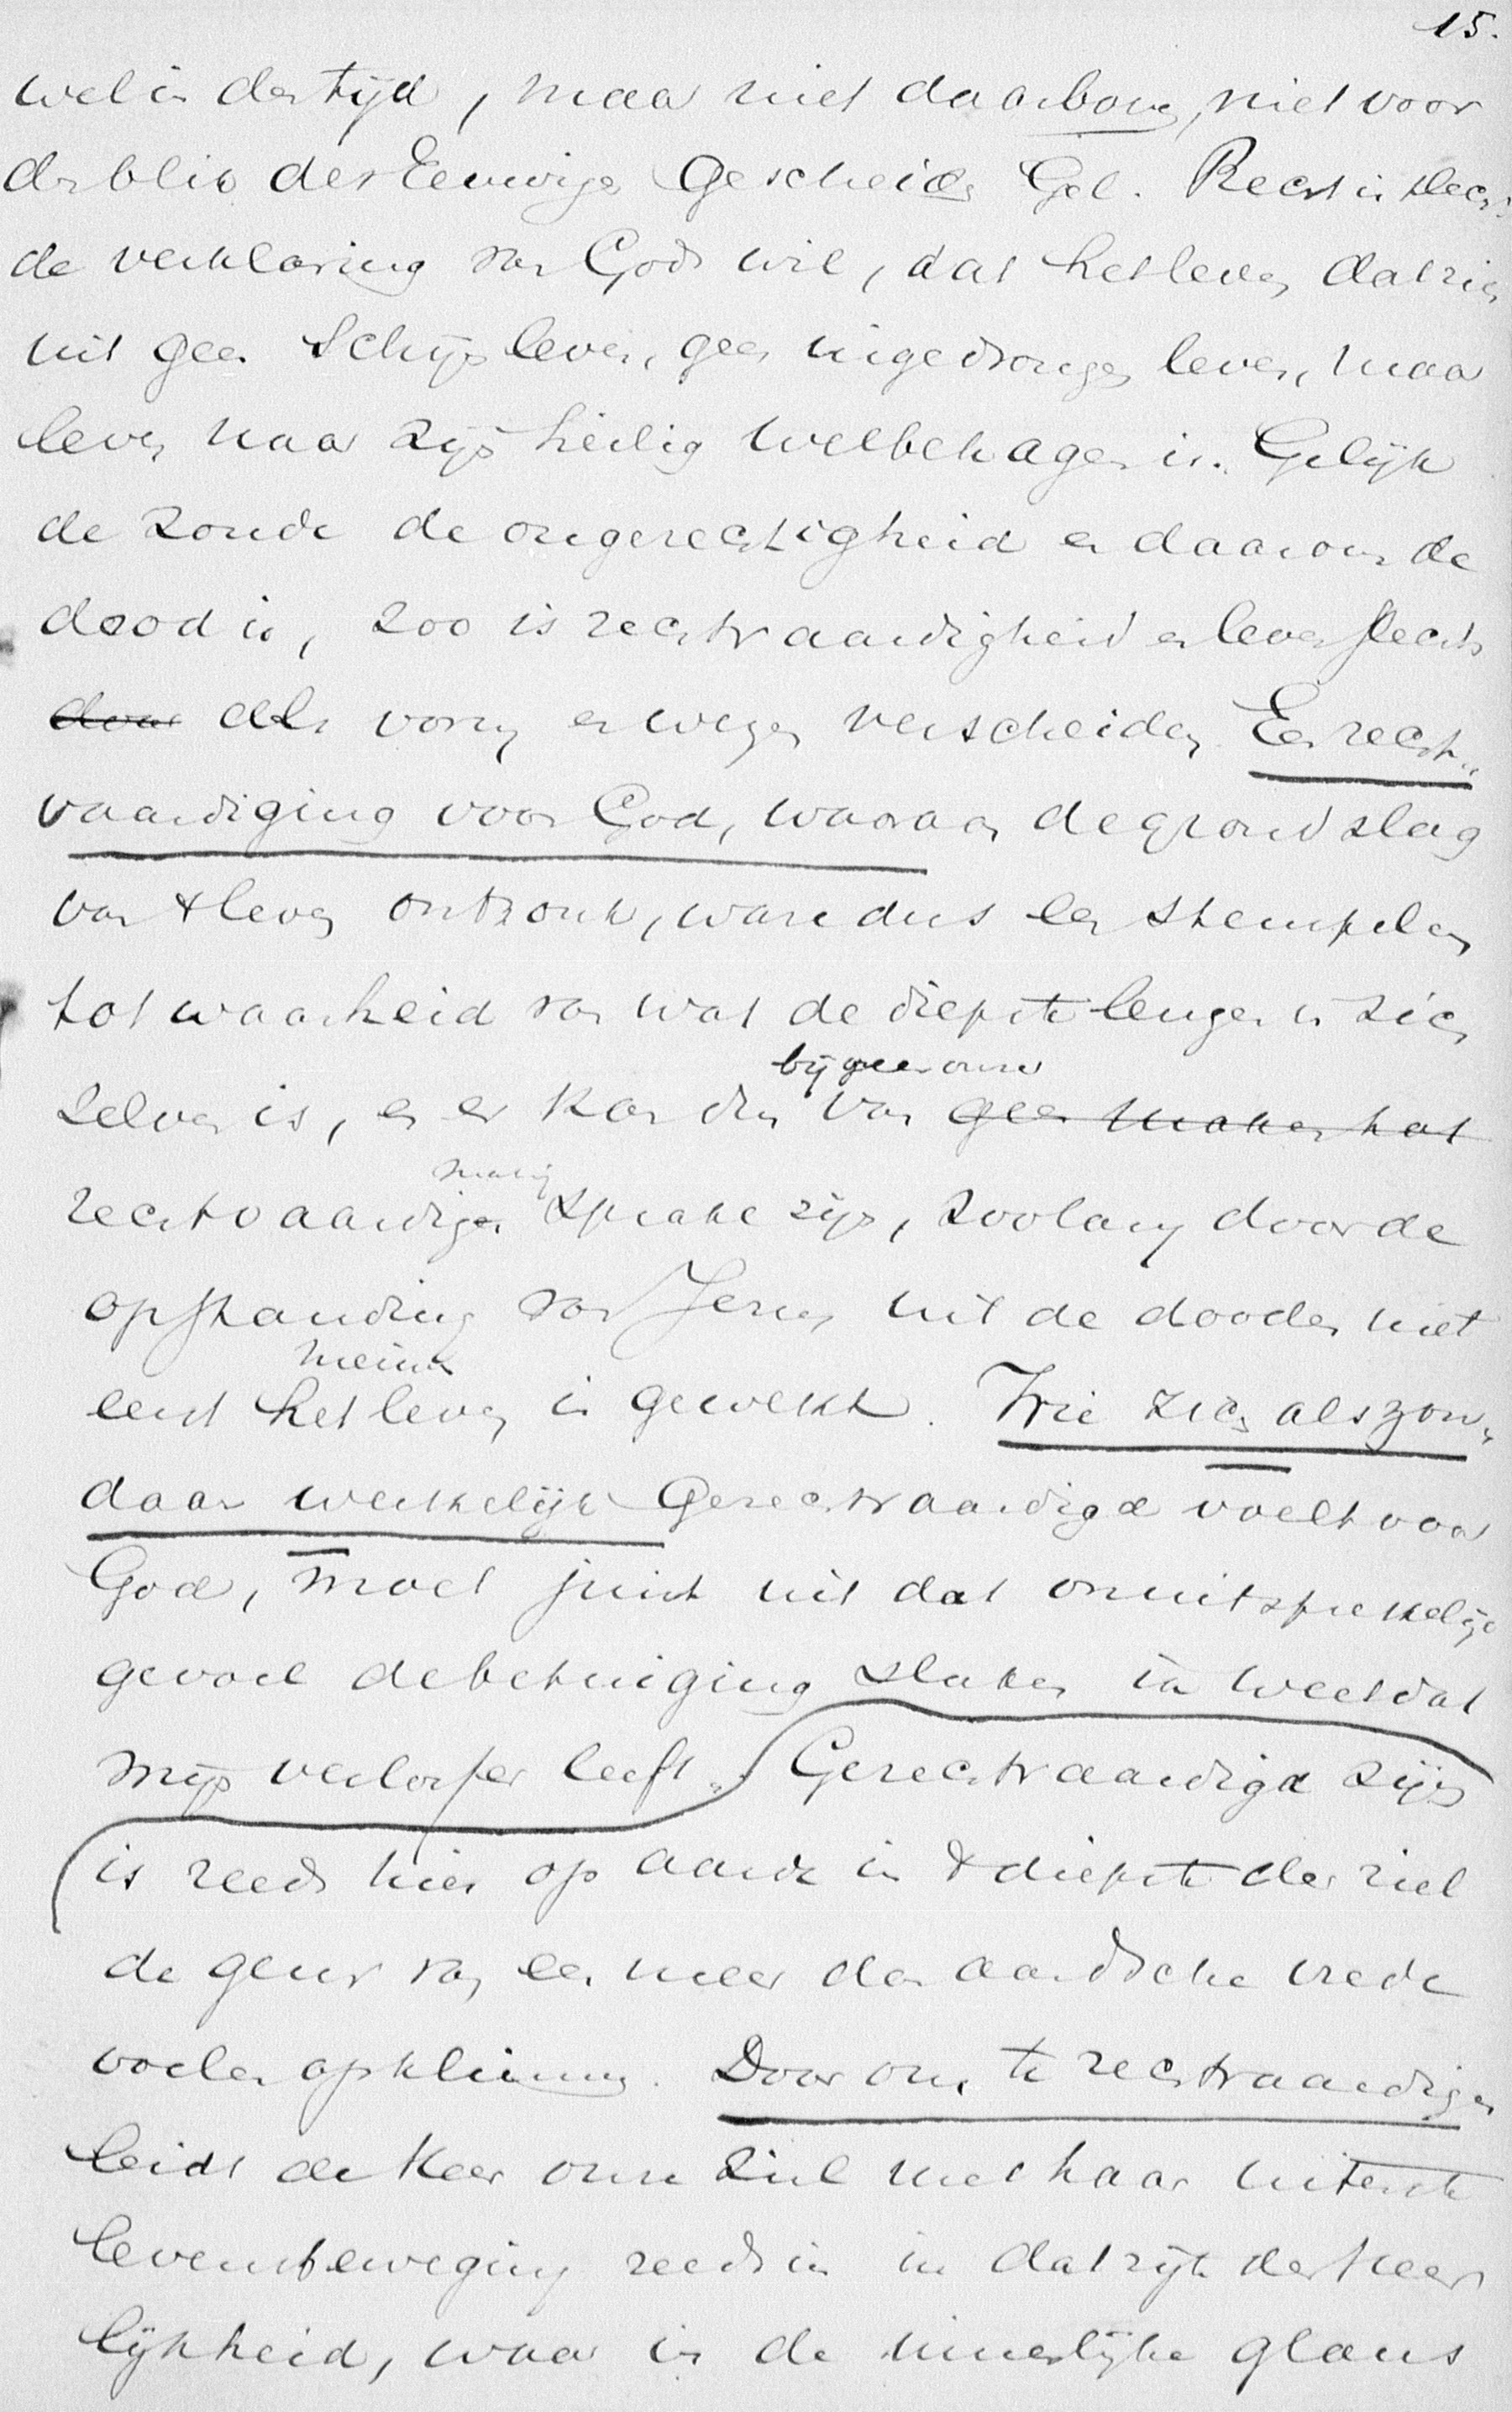 15.
wel in den tijd, maar niet daarboven, niet voor
den blik des Eeuwigen gescheiden Gel. Recht is slechts
de verklaring van Gods wil, dat het leven dat zich
uit geen schijnleven, geen ingedrongen leven, maar
leven naar zijn heilig welbehagen is. Gelijk
de zonde de ongerechtigheid en daarom de
dood is, zoo is rechtvaardigheid en leven slechts
door als vorm en wezen verscheiden. Een recht„
vaardiging voor God, waaraan de grondslag
van 't leven ontzonk, ware dus een stempelen
tot waarheid van wat de diepste leugen in zich
bij geen onzer
zelven is, en er kan dan van geen maken hat
rechtvaardigen sprake zijn, zoolang door de
opstanding van Jezus uit de dooden niet
eerst het leven is gewekt. Wie zich als zon„
daar werkelijk gerechtvaardigd voelt voor
God, moet juist uit dat onuitsprekelijk
gevoel de betuiging slaken ik weet dat
mijn verlosser leeft. Gerechtvaardigd zijn
is reeds hier op aarde in 't diepste der ziel
de geur van een meer dan aardsche vrede
voelen opklimmen. Door ons te rechtvaardigen
leidt de Heer onze ziel met haar uiterste
levensbeweging reeds in in dat rijk der heer
lijkheid, waar in de innerlijke glans